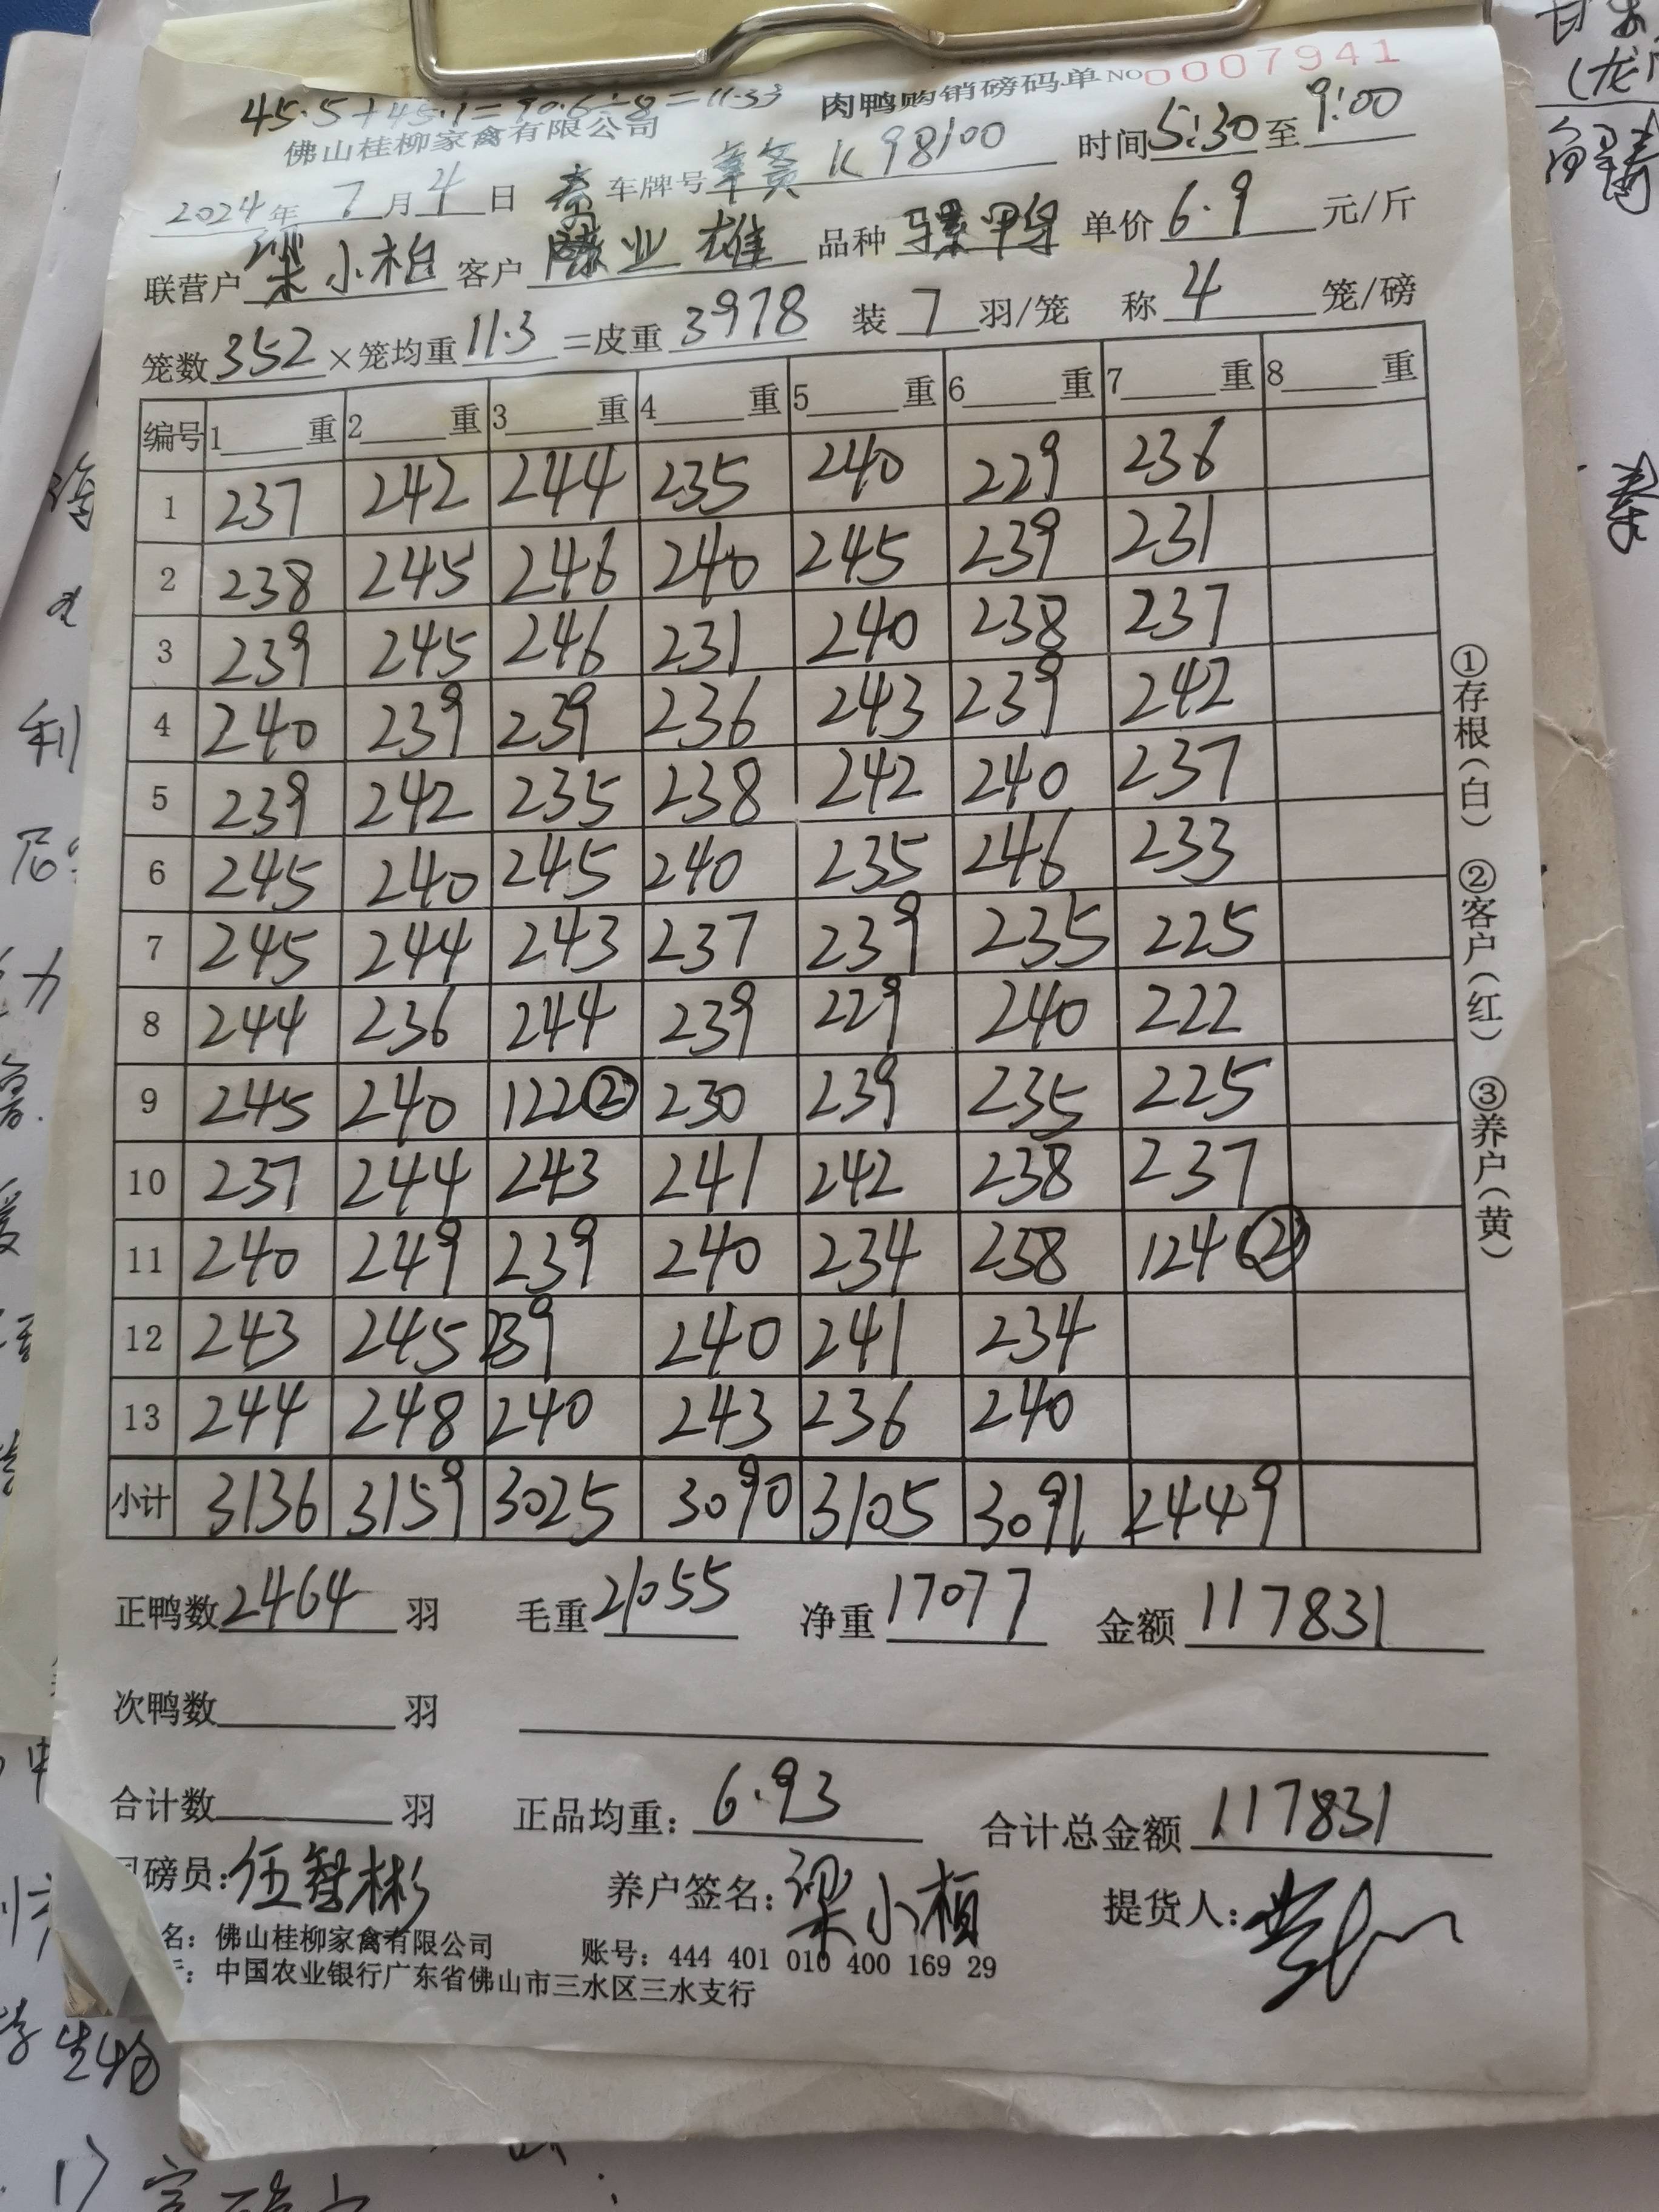 肉鸭购销磅码单 NO 0007941
45.5+45.1=90.6÷8=11.33
佛山桂柳家禽有限公司
时间 5:30 至 9:00
2024年 7月 4日 车牌号 K98100
联营户 梁小柏 客户 业雄 品种 骡鸭 单价 6.9 元/斤
笼数 352 ×笼均重 11.3 =皮重 3978 装 7 羽/笼 称 4 笼/磅
编号 1 重 2 重 3 重 4 重 5 重 6 重 7 重 8 重
1 237 242 244 235 240 229 236
2 238 245 246 240 245 239 231
3 239 245 246 231 240 238 237
4 240 239 239 236 243 239 242
5 239 242 235 238 242 240 237
6 245 240 245 240 235 246 233
7 245 244 243 237 239 235 225
8 244 236 244 239 229 240 222
9 245 240 122② 230 239 235 225
10 237 244 243 241 242 238 237
11 240 249 239 240 234 238 124②
12 243 245 239 240 241 234
13 244 248 240 243 236 240
小计 3136 3159 3025 3090 3105 3091 2449
①存根(白) ②客户(红) ③养户(黄)
正鸭数 2464 羽 毛重 21055 净重 17077 金额 117831
次鸭数 羽
合计数 羽 正品均重: 6.93 合计总金额 117831
磅员: 伍智彬 养户签名: 梁小桓 提货人:
名: 佛山桂柳家禽有限公司 账号: 444 401 010 400 169 29
中国农业银行广东省佛山市三水区三水支行